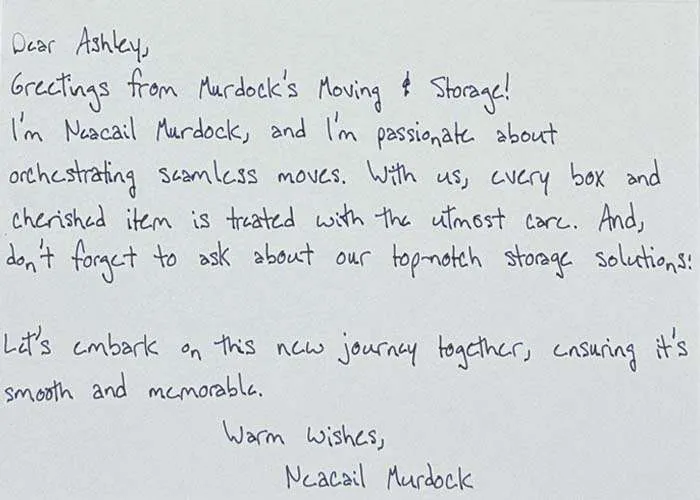 Dear Ashley,
Greetings from Murdock's Moving & Storage!
I'm Neacail Murdock, and I'm passionate about
orchestrating seamless moves. With us, every box and
cherished item is treated with the utmost care. And,
don't forget to ask about our top-notch storage solutions!
Let's embark on this new journey together, ensuring it's
smooth and memorable.
Warm wishes,
Neacail Murdock